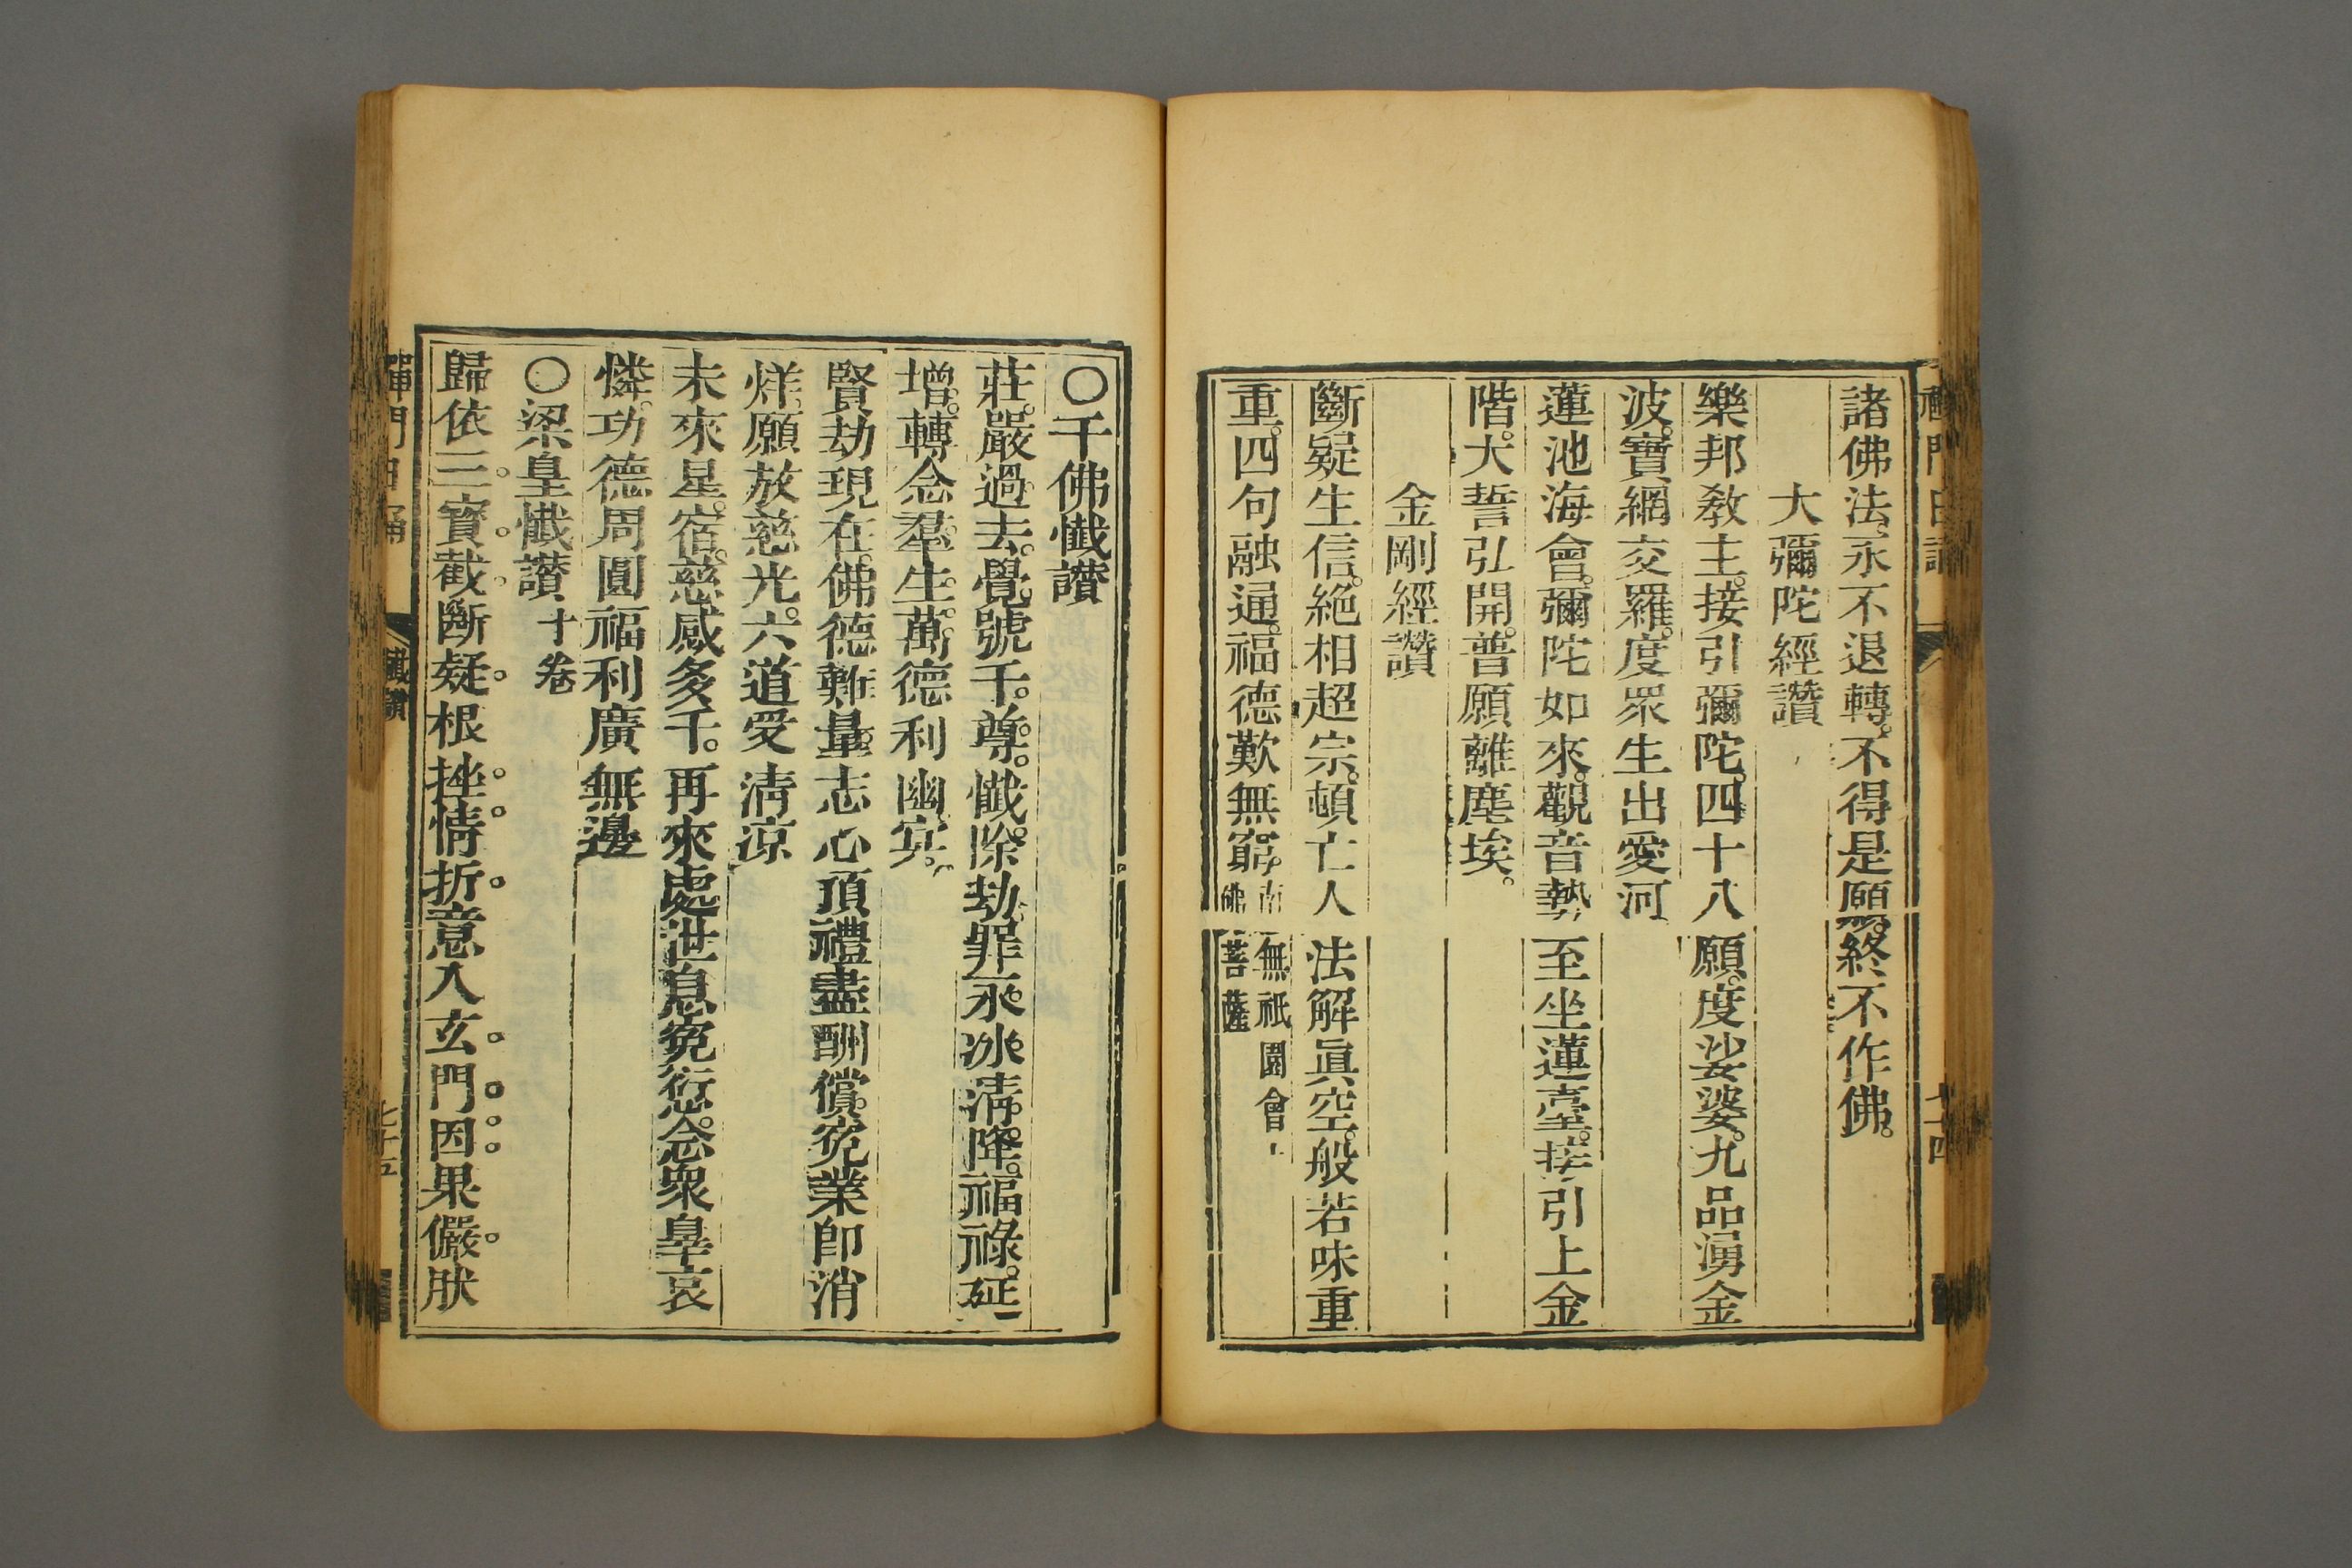 諸佛法。永不退轉。不得是願。終不作佛。
大彌陀經讚
樂邦敎主。接引彌陀。四十八願。度娑婆。九品湧金
波。寶網交羅。度眾生出愛河
蓮池海會。彌陀如來。觀音勢至坐蓮臺。接引上金
階。大誓弘開。普願離塵埃。
金剛經讚
斷疑生信。絕相超宗。頓亡人法解眞空。般若味重
重。四句融通。福德歎無窮。南無祇園會上佛菩薩
禪門日誦
七十四
○千佛懺讃
莊嚴過去。覺號千尊。懺除劫罪永冰清。降福祿。延
增。轉念羣生。萬德利幽冥。
賢劫現在。佛德難量志心頂禮盡酬償。冤業即消
烊。願放慈光。六道受清涼
未來星宿。慈感多千。再來處世息冤愆。念衆皐哀
憐。功德周圓福利廣無邊
○梁皇懺讃 十卷
歸依三寶截斷疑根挫情折意入玄門因果儼肰
禪門日誦
懺讃
七十五